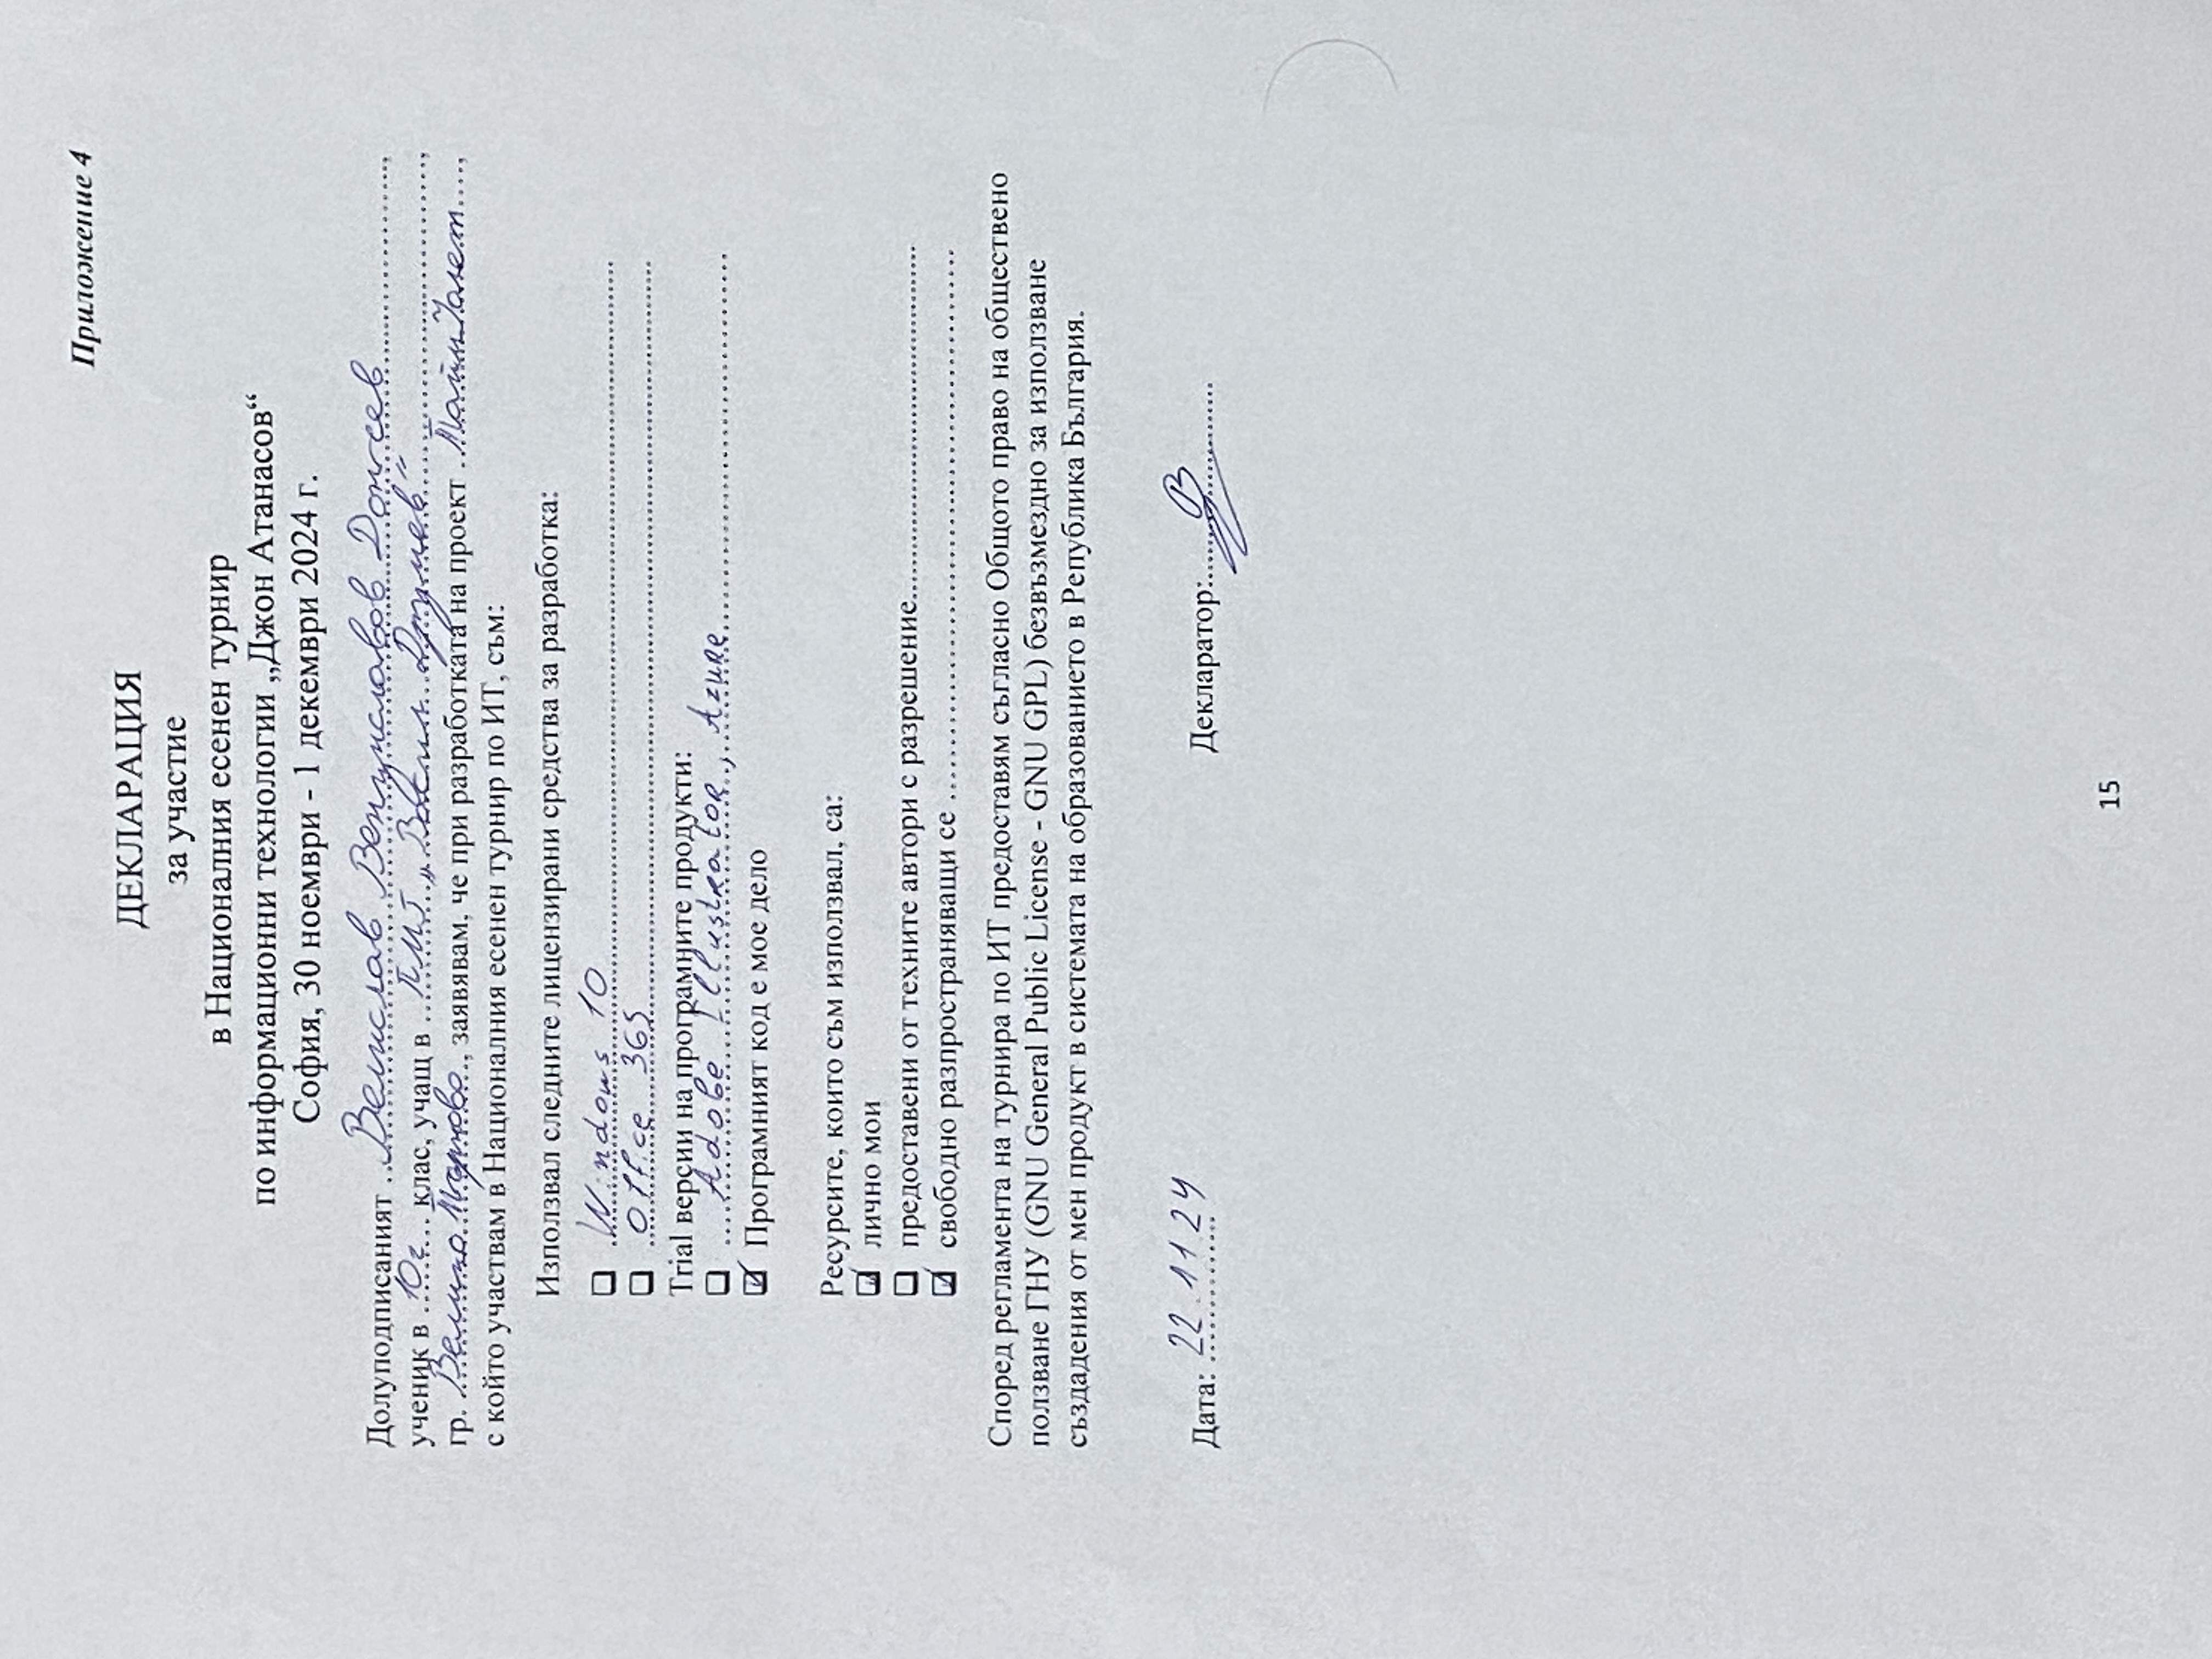 Приложение 4
ДЕКЛАРАЦИЯ
за участие
в Националния есенен турнир
по информационни технологии „Джон Атанасов“
София, 30 ноември - 1 декември 2024 г.
Долуподписаният Велислав Венциславов Дончев,
ученик в 10г клас, учащ в ПМГ „Васил Друмев“,
гр. Велико Търново, заявявам, че при разработката на проект
с който участвам в Националния есенен турнир по ИТ, съм:
Използвал следните лицензирани средства за разработка:
Windows 10
Office 365
Trial версии на програмните продукти:
Adobe Illustrator, Azure
Програмният код е мое дело
Ресурсите, които съм използвал, са:
лично мои
предоставени от техните автори с разрешение
свободно разпространяващи се
Според регламента на турнира по ИТ предоставям съгласно Общото право на обществено
ползване ГНУ (GNU General Public License - GNU GPL) безвъзмездно за използване
създадения от мен продукт в системата на образованието в Република България.
Дата: 22.11.24 Декларатор:
15